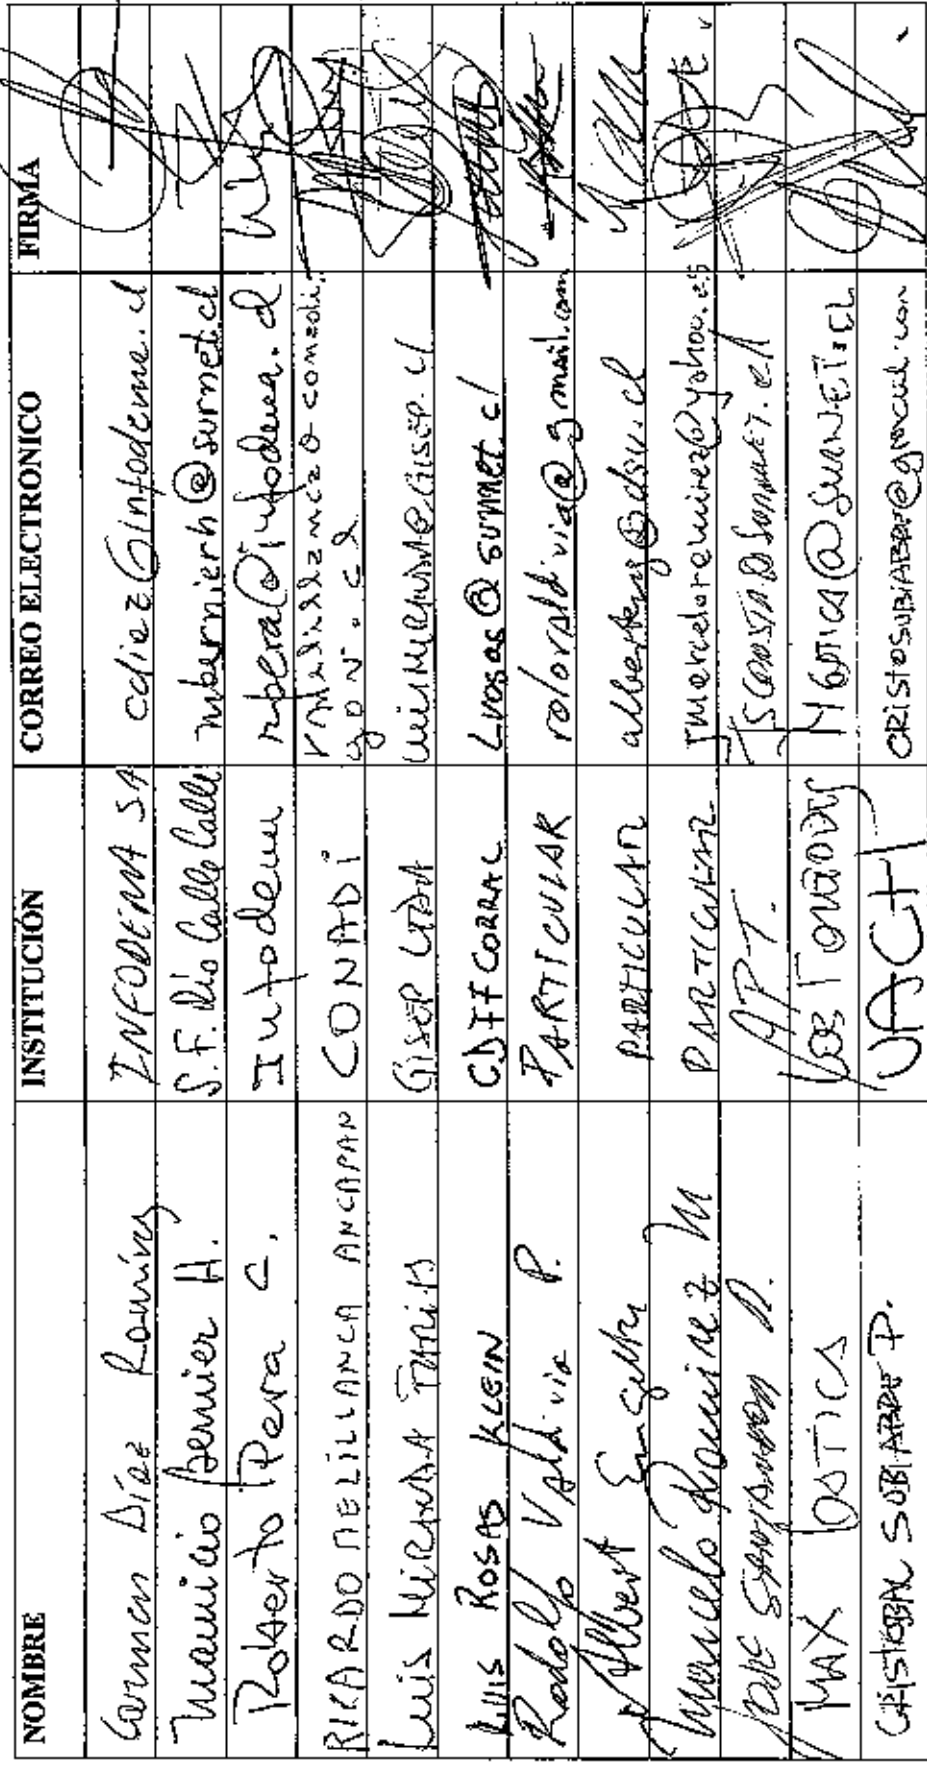 NOMBRE INSTITUCIÓN CORREO ELECTRONICO FIRMA
Carmen Díaz Ramírez INFODEMA SA cdiaz@infodema.cl
Mauricio Bernier H. S.F. Río Calle Calle mbernierh@surnet.cl
Roberto Pera C. Infodema rpera@infodema.cl
RICARDO MELILLANCA ANCAPAN CONADI rmelillanca@conadi.
gov.cl
Luis MIRANDA GISEP LTDA luismiranda@GISEP.cl
Luis ROSAS KLEIN CDFF CORRAL Lrosas@surnet.cl
Rodolfo Valdivia P. PARTICULAR rolovaldivia@gmail.com
Albert PARTICULAR
Marcelo Ramirez M PARTICULAR jmarceloramirez@yahoo.es
JOSE APT.
MAX @SURNET.CL
CRISTOBAL SUBIABRE P. UACH CRISTOSUBIABRE@gmail.com